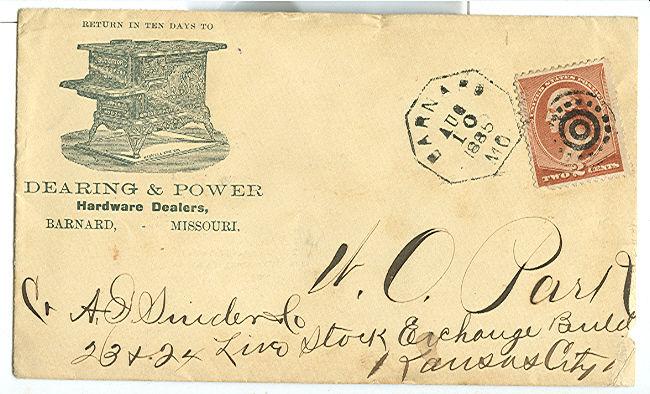 RETURN IN TEN DAYS TO
DEARING & POWER
Hardware Dealers,
BARNARD, - MISSOURI.
BARNARD
AUG
10
1885
MO.
UNITED STATES POSTAGE
TWO 2 CENTS
W. O. Park
Cr A. J. Snider & Co
23 & 24 Live Stock Exchange Build
Kansas City